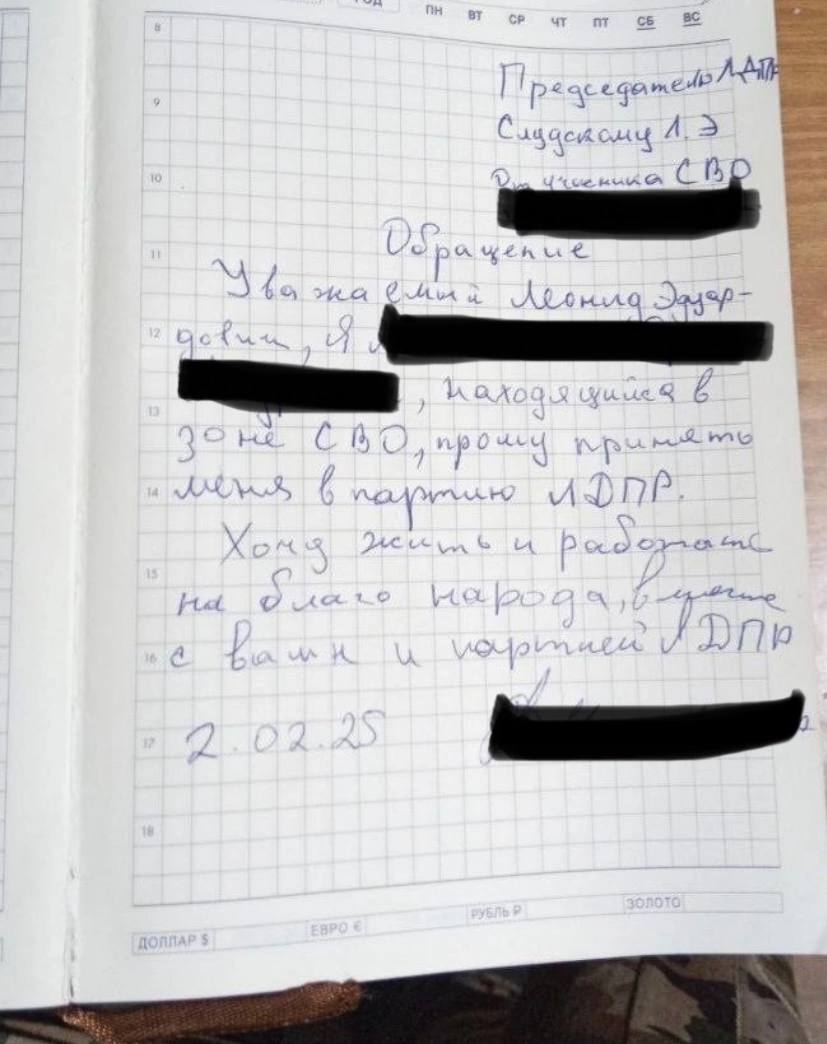 ПН ВТ СР ЧТ ПТ СБ ВС
8
Председателю ЛДПР
9
Слудскому Л. Э
10
От участника СВО
Обращение
11
Уважаемый Леонид Эдуар-
12 дович, Я
, находящийся в
13
зоне СВО, прошу принять
14 меня в партию ЛДПР.
Хочу жить и работать
15
на благо народа, вместе
16 с вами и партией ЛДПР
17 2.02.25
18
ДОЛЛАР $ ЕВРО € РУБЛЬ Р ЗОЛОТО